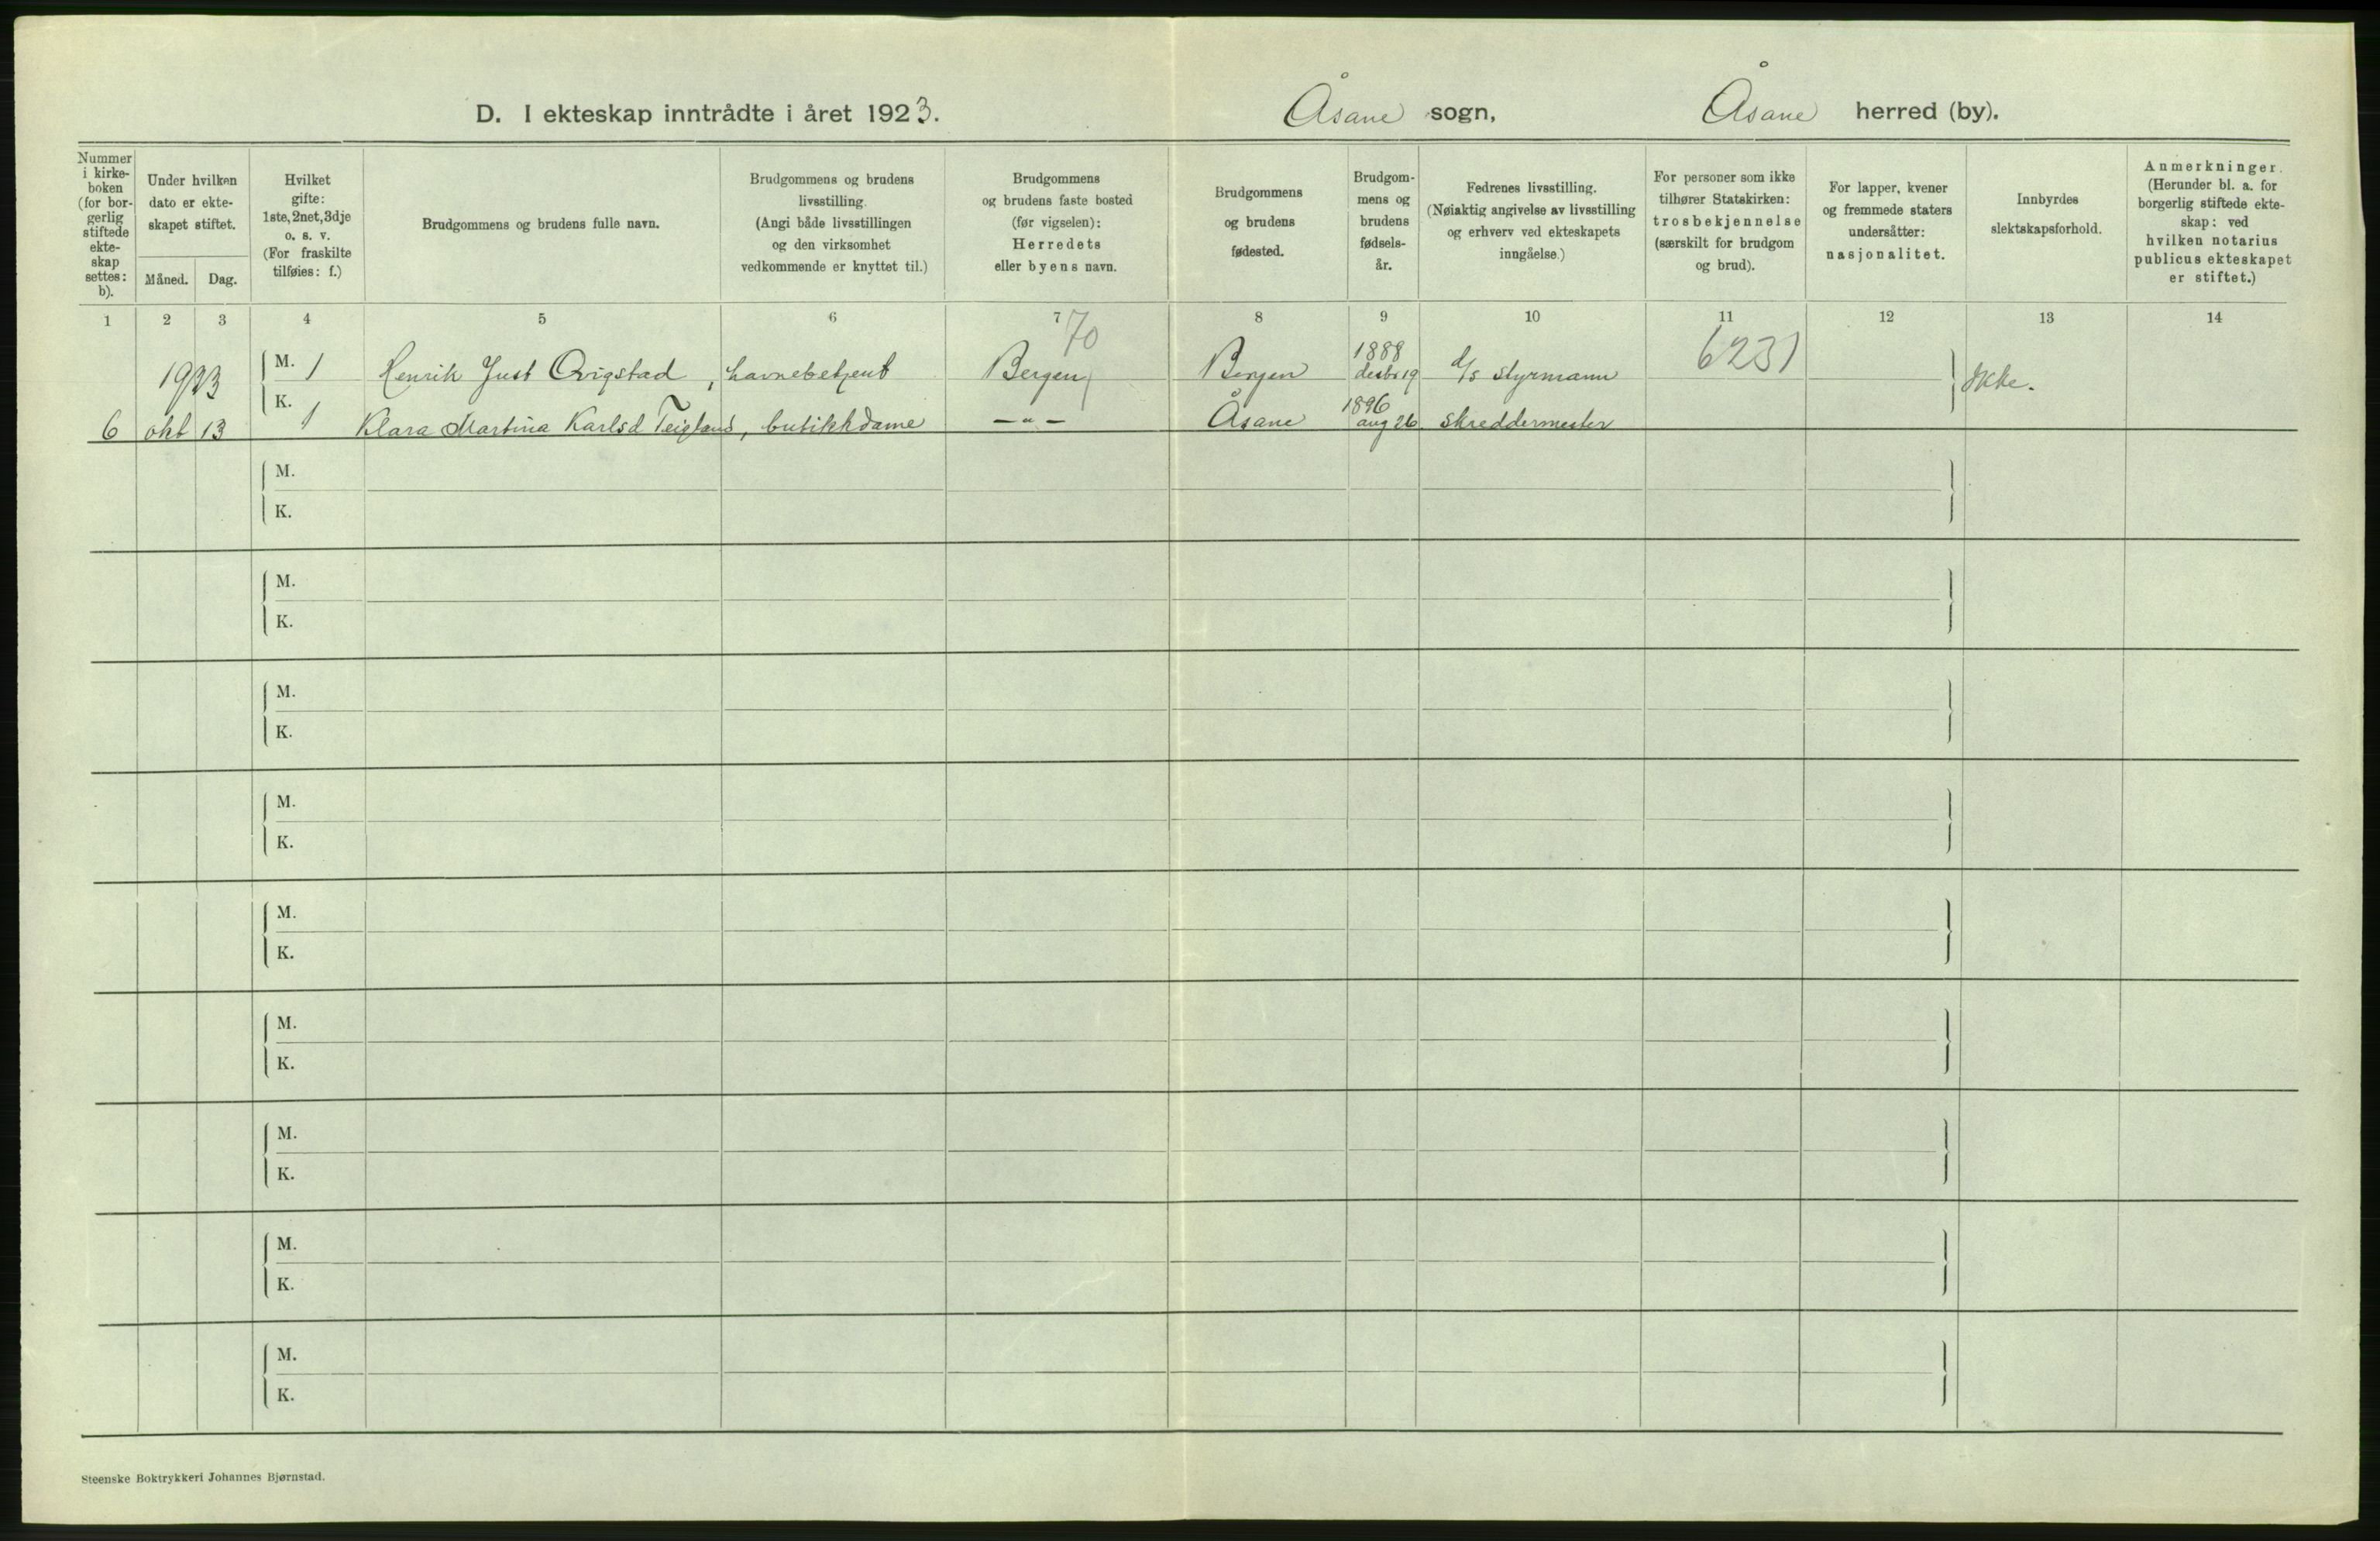 D. I ekteskap inntrådte i året 1923. Åsane sogn, Åsane herred (by).
Nummer
i kirke-
boken
(for bor-
gerlig
stiftede
ekte-
skap
settes:
b).
Under hvilken
dato er ekte-
skapet stiftet.
Måned. Dag.
Hvilket
gifte:
1ste, 2net, 3dje
o. s. v.
(For fraskilte
tilføies: f.)
Brudgommens og brudens fulle navn.
Brudgommens og brudens
livsstilling.
(Angi både livsstillingen
og den virksomhet
vedkommende er knyttet til.)
Brudgommens
og brudens faste bosted
(før vigselen):
Herredets
eller byens navn.
Brudgommens
og brudens
fødested.
Brudgom-
mens og
brudens
fødsels-
år.
Fedrenes livsstilling.
(Nøiaktig angivelse av livsstilling
og erhverv ved ekteskapets
inngåelse.)
For personer som ikke
tilhører Statskirken:
trosbekjennelse
(særskilt for brudgom
og brud).
For lapper, kvener
og fremmede staters
undersåtter:
nasjonalitet.
Innbyrdes
slektskapsforhold.
Anmerkninger.
(Herunder bl. a. for
borgerlig stiftede ekte-
skap: ved
hvilken notarius
publicus ekteskapet
er stiftet.)
1 2 3 4 5 6 7 8 9 10 11 12 13 14
70
1923 M. 1 Henrik Just Qvigstad, havnebetjent Bergen Bergen 1888 desbr 19 d/s styrmann 6231 Ikke.
6 okt 13 K. 1 Klara Martina Karlsd Teigland, butikkdame -"- Åsane 1896 aug 26 skreddermester
M.
K.
M.
K.
M.
K.
M.
K.
M.
K.
M.
K.
M.
K.
M.
K.
M.
K.
Steenske Boktrykkeri Johannes Bjørnstad.